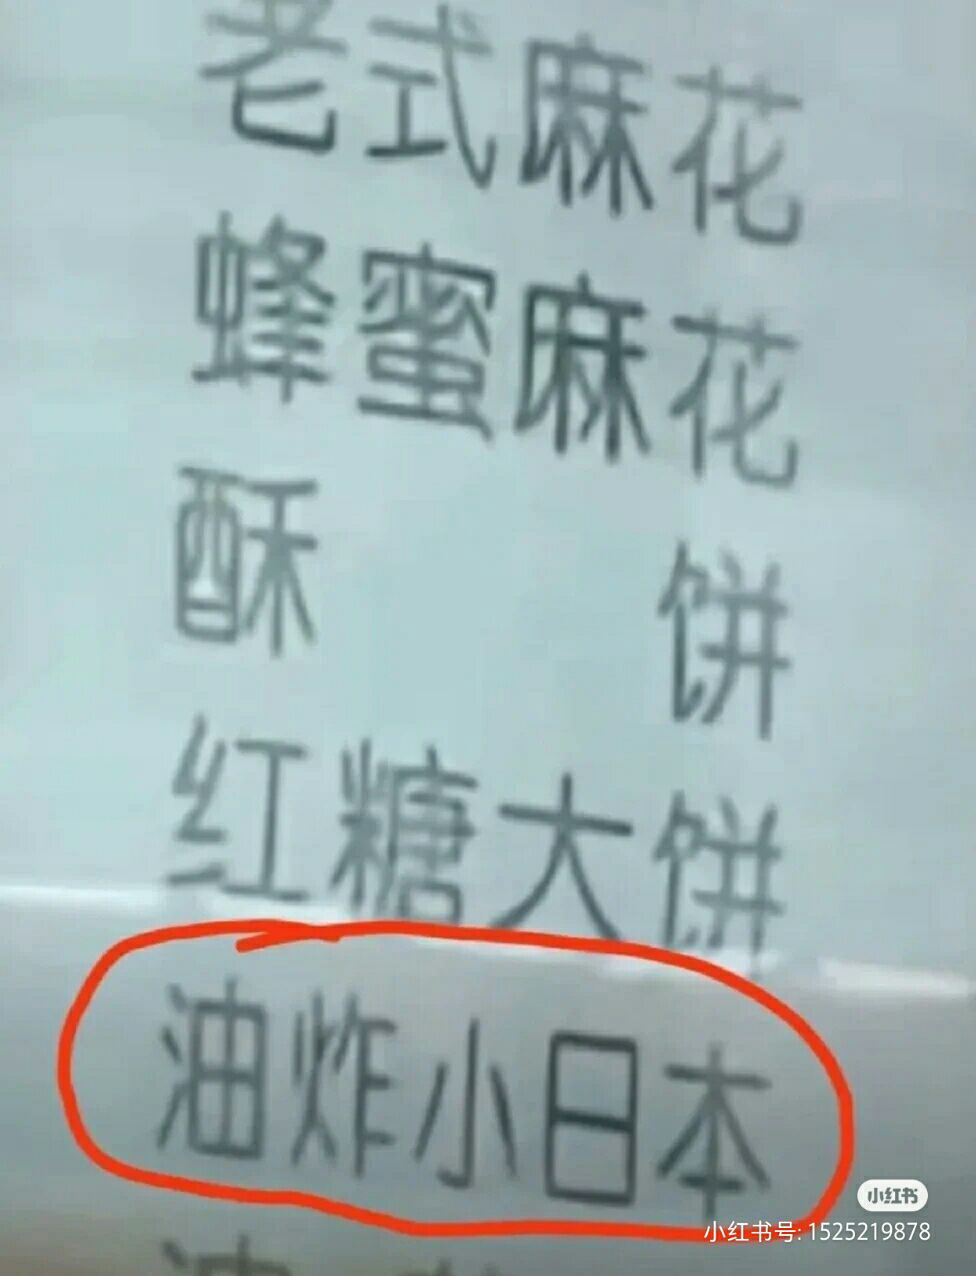 老式麻花
蜂蜜麻花
酥 饼
红糖大饼
油炸小日本
小红书
小红书号: 1525219878